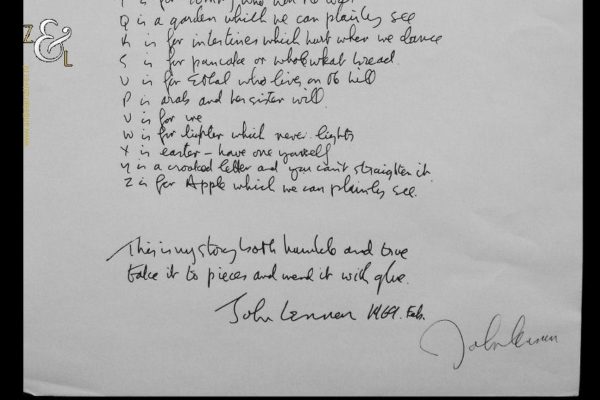 Z & L
Q is a garden which we can plainly see
R is for intestines which hurt when we dance
S is for pancake or wholewheat bread.
U is for Ethal who lives on hill
P is arab and her sister will.
V is for me
W is for lighter which never lights
X is easter - have one yourself
Y is a crooked letter and you can't straighten it.
Z is for Apple which we can plainly see.
This is my story both humble and true
take it to pieces and mend it with glue.
John Lennon 1969. Feb.
John Lennon